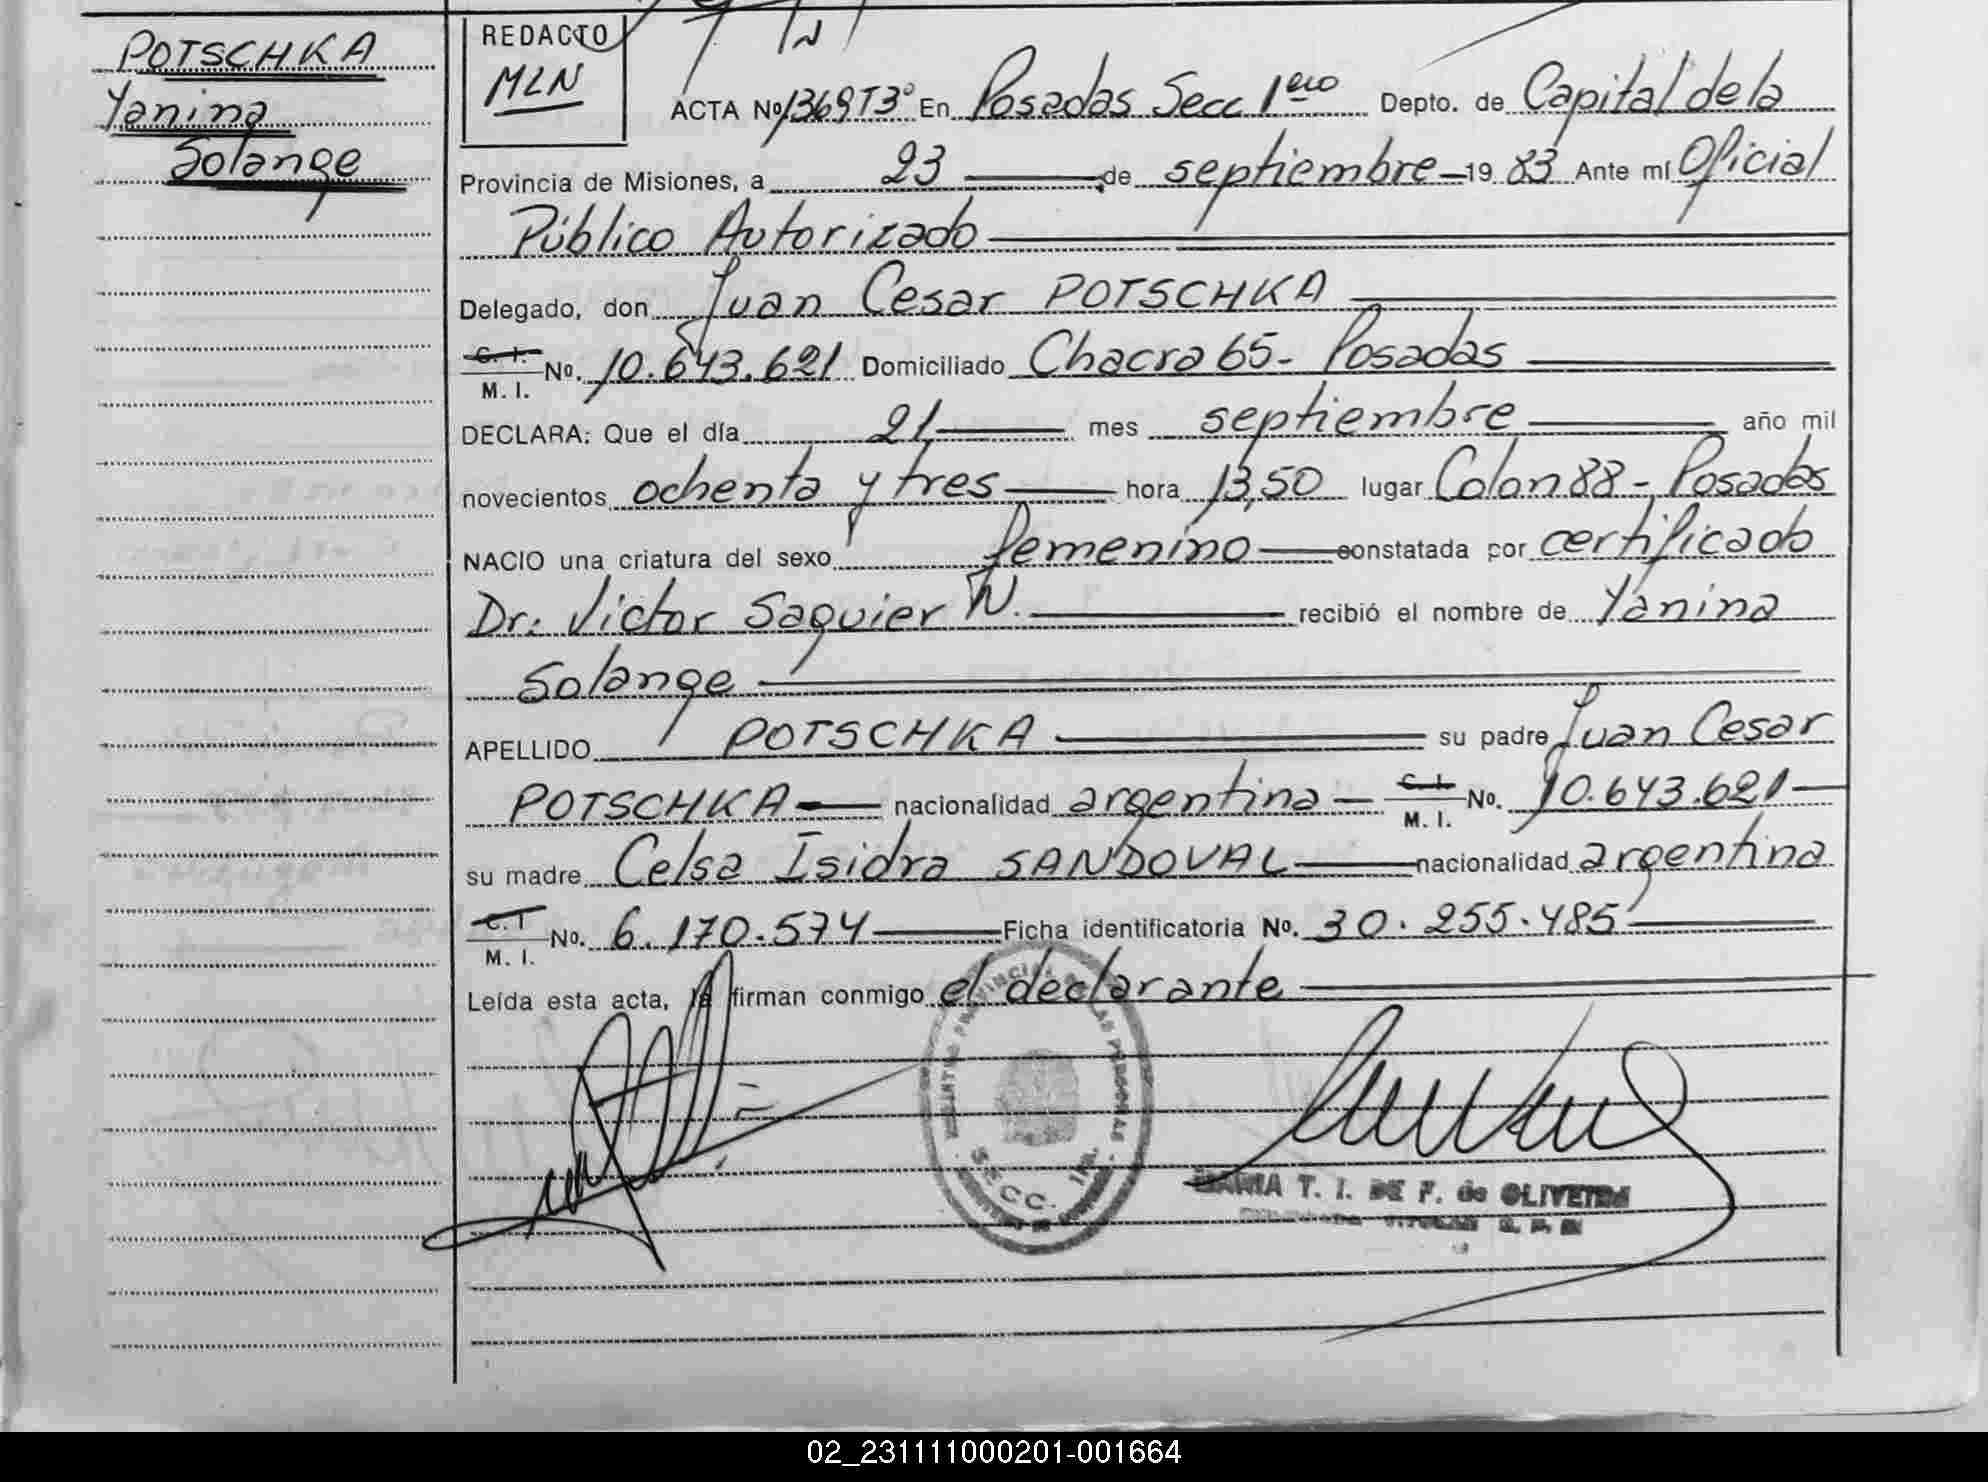 POTSCHKA
Yanina
Solange
REDACTO
MLN
ACTA No 1369 T3° En Posadas Secc 1era Depto. de Capital de la
Provincia de Misiones, a 23 de septiembre 19 83 Ante mí Oficial
Público Autorizado
Delegado, don Juan Cesar POTSCHKA
C. I.
M. I. No. 10.643.621 Domiciliado Chacra 65- Posadas
DECLARA: Que el día 21 mes septiembre año mil
novecientos ochenta y tres hora 13,50 lugar Colon 88 - Posadas
NACIO una criatura del sexo femenino constatada por certificado
Dr. Victor Saguier N. recibió el nombre de Yanina
Solange
APELLIDO POTSCHKA su padre Juan Cesar
POTSCHKA nacionalidad argentina C. I.
M. I. No. 10.643.621
su madre Celsa Isidra SANDOVAL nacionalidad argentina
C. I
M. I. No. 6.170.574 Ficha identificatoria No. 30.255.485
Leída esta acta, la firman conmigo el declarante
SECC. 1RA.
MARIA T. I. DE F. de OLIVEIRA
02_231111000201-001664